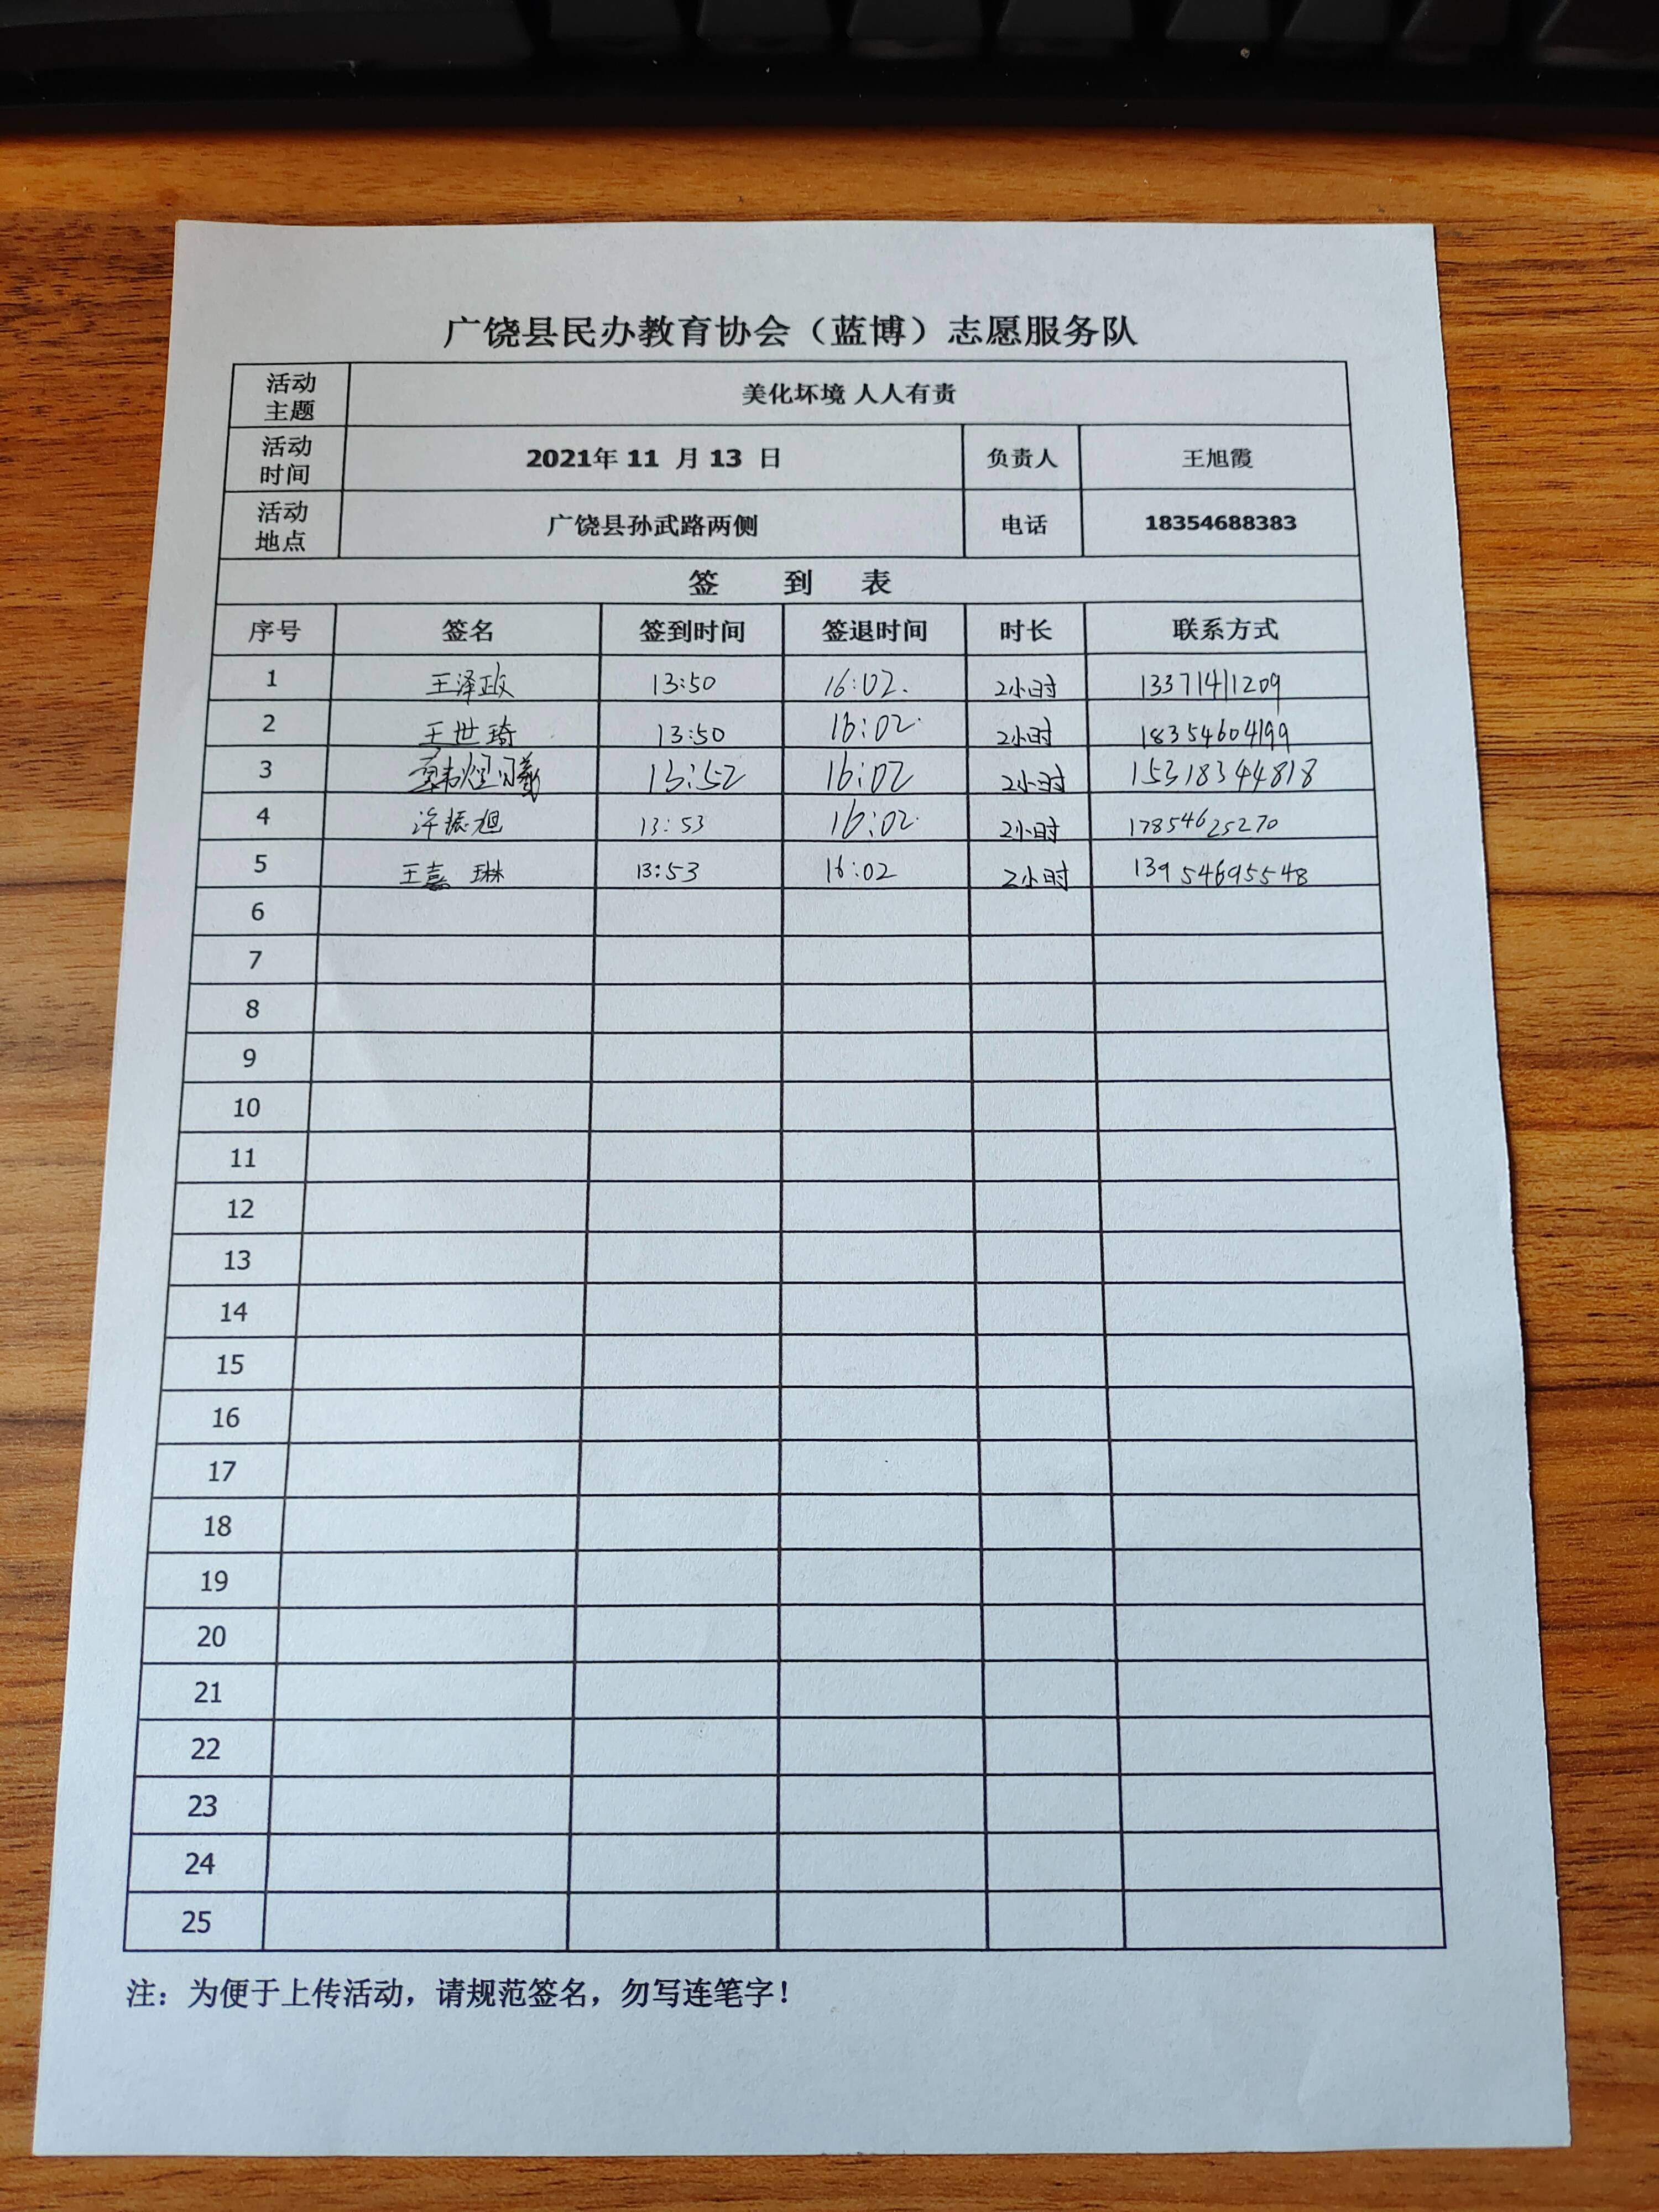 广饶县民办教育协会（蓝博）志愿服务队
活动主题 美化坏境 人人有责
活动时间 2021年 11 月 13 日 负责人 王旭霞
活动地点 广饶县孙武路两侧 电话 18354688383
签 到 表
序号 签名 签到时间 签退时间 时长 联系方式
1 王泽政 13:50 16:02. 2小时 13371411209
2 王世琦 13:50 16:02. 2小时 18354604199
3 13:52 16:02 2小时 15318344818
4 许振旭 13:53 16:02. 2小时 17854625270
5 王嘉琳 13:53 16:02 2小时 13954695548
6
7
8
9
10
11
12
13
14
15
16
17
18
19
20
21
22
23
24
25
注：为便于上传活动，请规范签名，勿写连笔字！